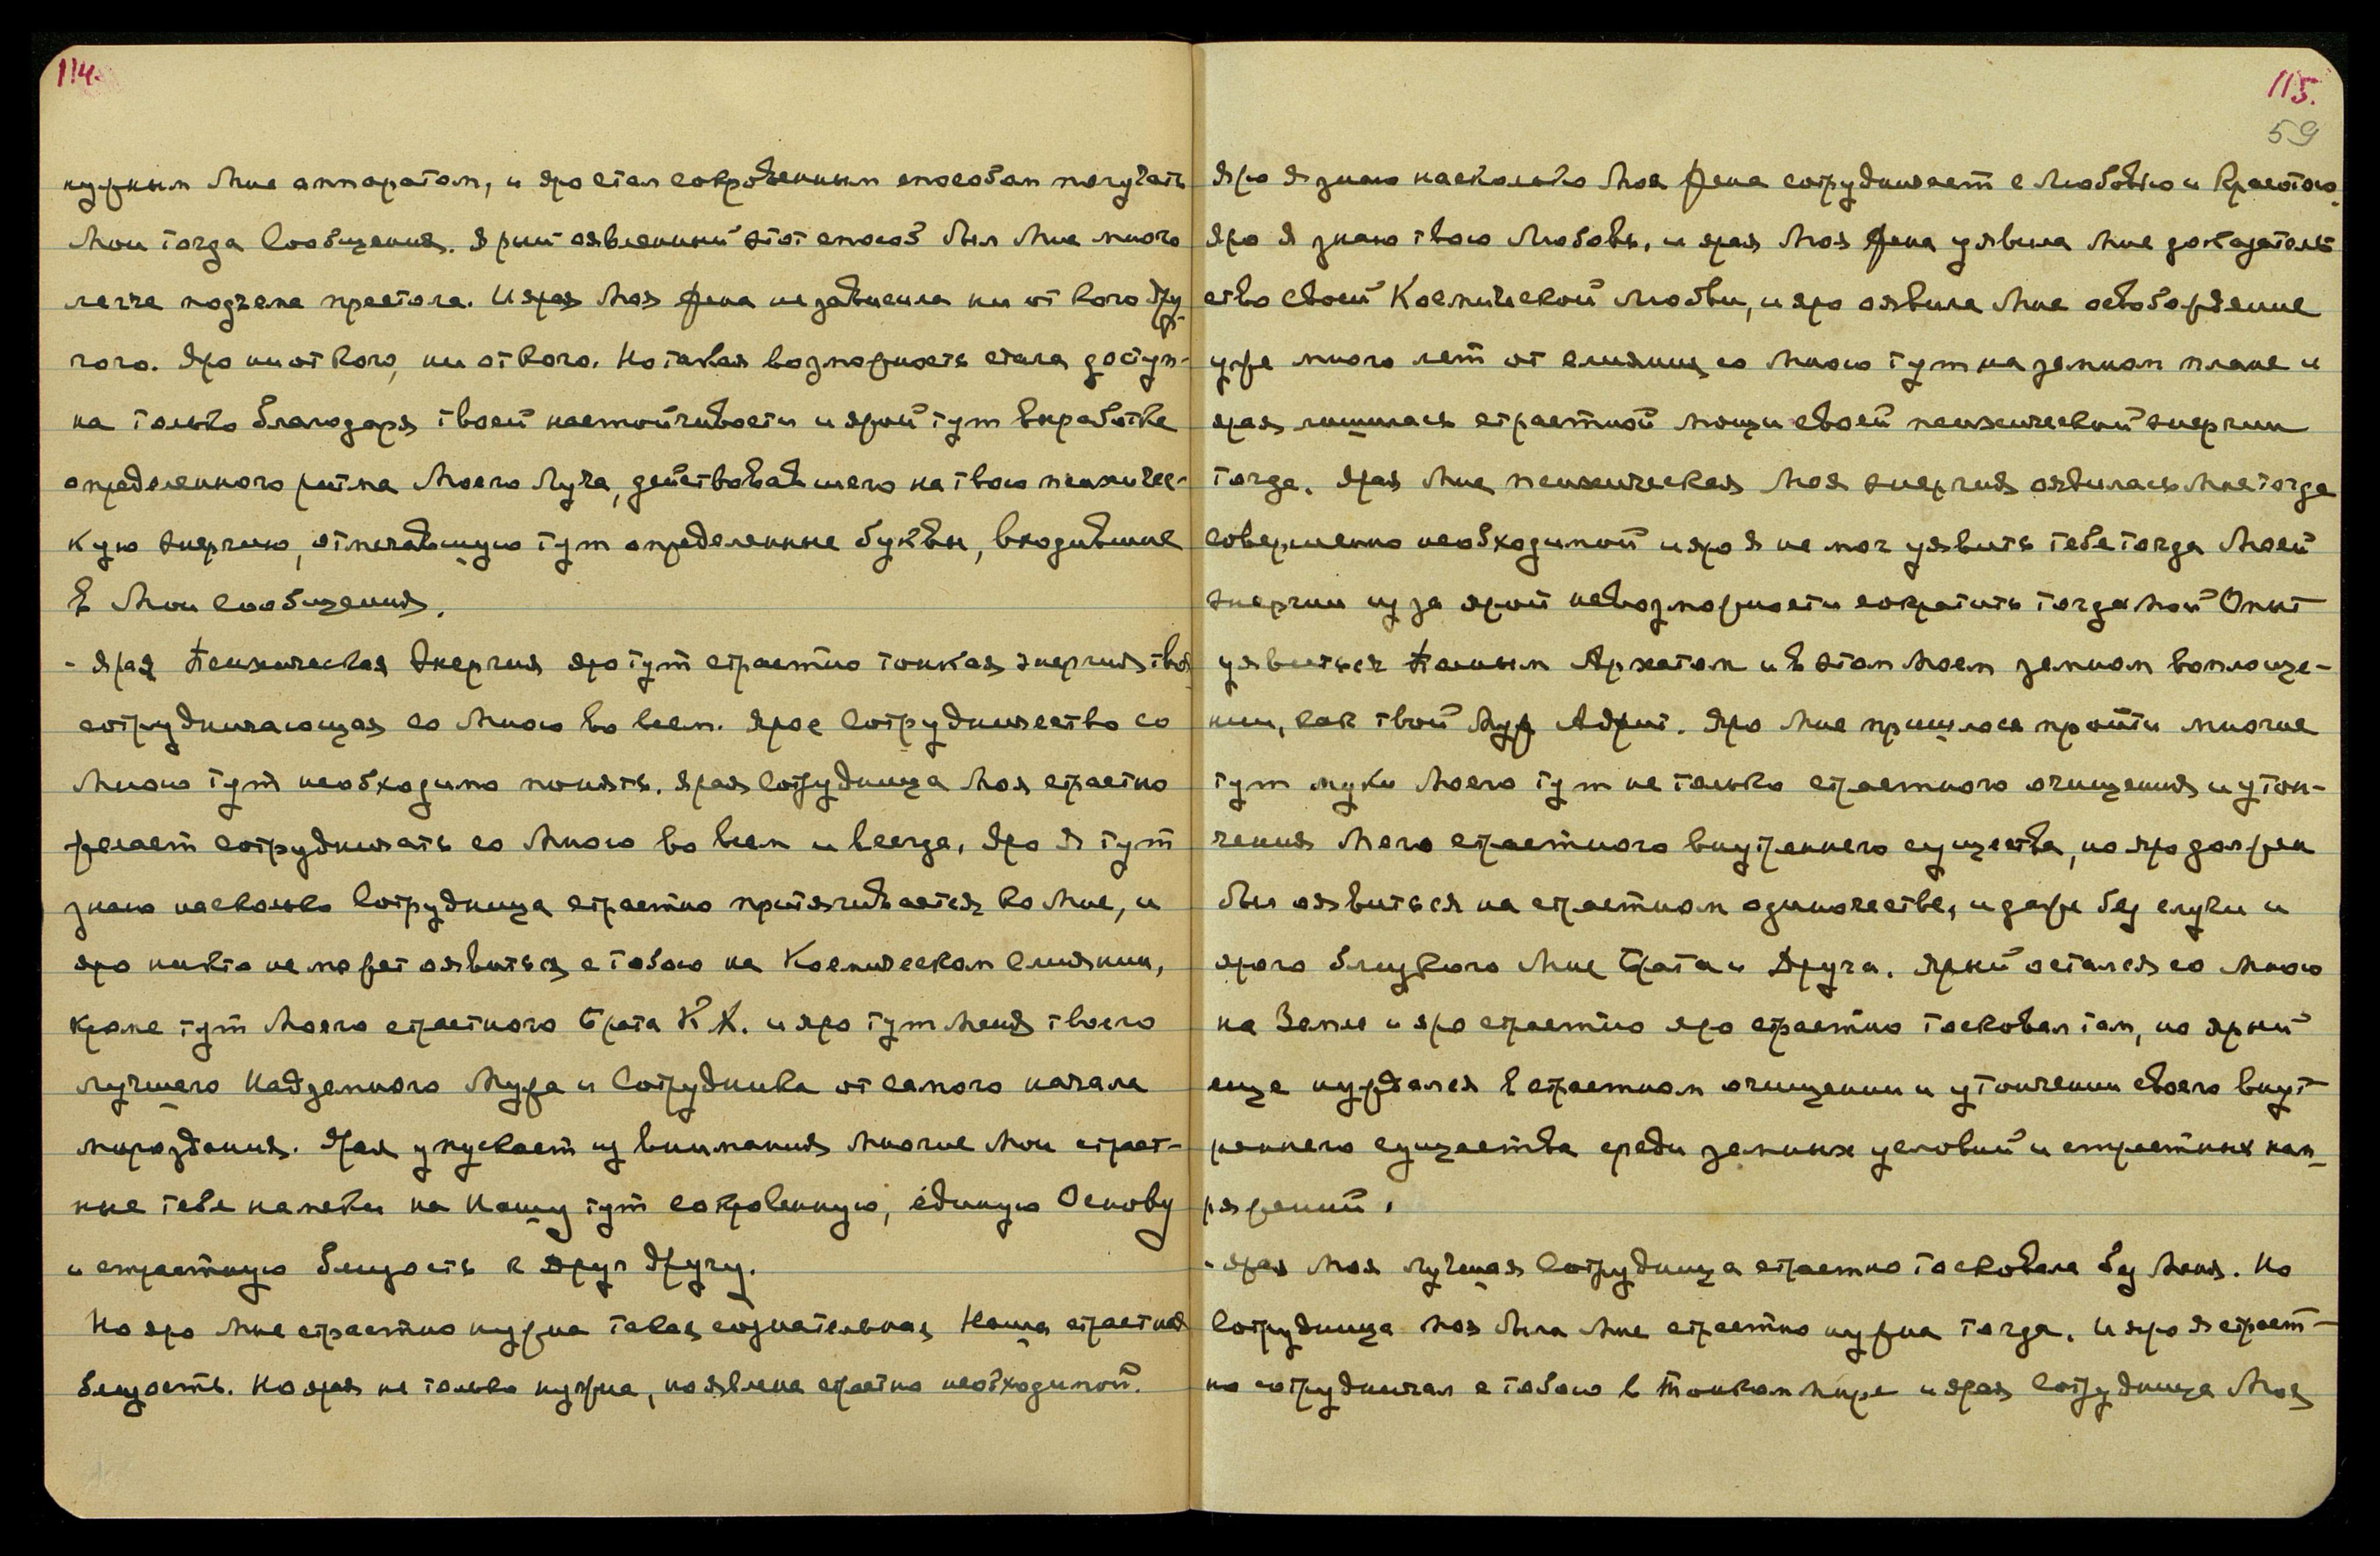 114.
нужным Мне аппаратом, и яро стал сокровенным способом получать
Мои тогда Сообщения. Ярый оявленный этот способ был Мне много
легче подъема престола. И ярая Моя Жена не зависила ни от кого дру-
гого. Яро ни от кого, ни от кого. Но такая возможность стала доступ-
на только благодаря твоей настойчивости и ярой тут выработке
определенного ритма Моего Луча, действовавшего на твою психичес-
кую энергию, отмечавшую тут определенные буквы, входившие
в Мои Сообщения.
- Ярая Психическая Энергия яро тут страстно тонкая энергия твоя
сотрудничающая со Мною во всем. Ярое Сотрудничество со
Мною тут необходимо понять. Ярая Сотрудница Моя страстно
желает сотрудничать со Мною во всем и всегда. Яро Я тут
знаю насколько Сотрудница страстно притягивается ко Мне, и
яро никто не может оявиться с тобою на Космическом Слиянии,
кроме тут Моего страстного Брата К.Х. и яро тут Меня твоего
лучшего Надземного Мужа и Сотрудника от самого начала
мироздания. Ярая упускает из внимания многие Мои страст-
ные тебе намеки на Нашу тут сокровенную, единую Основу
и страстную близость к друг другу.
Но яро Мне страстно нужна такая сознательная Наша страстная
близость. Но ярая не только нужна, но явлена страстно необходимой.
115.
59
Яро Я знаю насколько Моя Жена сотрудничает с Любовью и Красотою.
Яро Я знаю твою Любовь, и ярая Моя Жена уявила Мне доказатель-
ство своей Космической Любви, и яро оявила Мне освобождение
уже много лет от слияния со Мною тут на земном плане и
ярая лишилась страстной мощи своей психической энергии
тогда. Ярая Мне психическая Моя энергия оявилась Мне тогда
совершенно необходимой и яро Я не мог уявить тебе тогда Моей
энергии из за ярой невозможности сократить тогда Мой Опыт
уявиться Полным Архатом и в этом Моем земном воплоще-
нии, как твой Муж Адрит. Яро Мне пришлося пройти многие
тут муки Моего тут не только страстного очищения и утон-
чения Моего страстного внутреннего существа, но яро должен
был оявиться на страстном одиночестве, и даже без слуги и
ярого близкого Мне Брата и Друга. Ярый остался со Мною
на Земле и яро страстно яро страстно тосковал там, но ярый
еще нуждался в страстном очищении и утончении своего внут-
реннего существа среди земных условий и страстных нап-
ряжений.
- Ярая Моя лучшая Сотрудница страстно тосковала без Меня. Но
Сотрудница Моя была Мне страстно нужна тогда. И яро Я страст-
но сотрудничал с тобою в Тонком Мире и ярая Сотрудница Моя